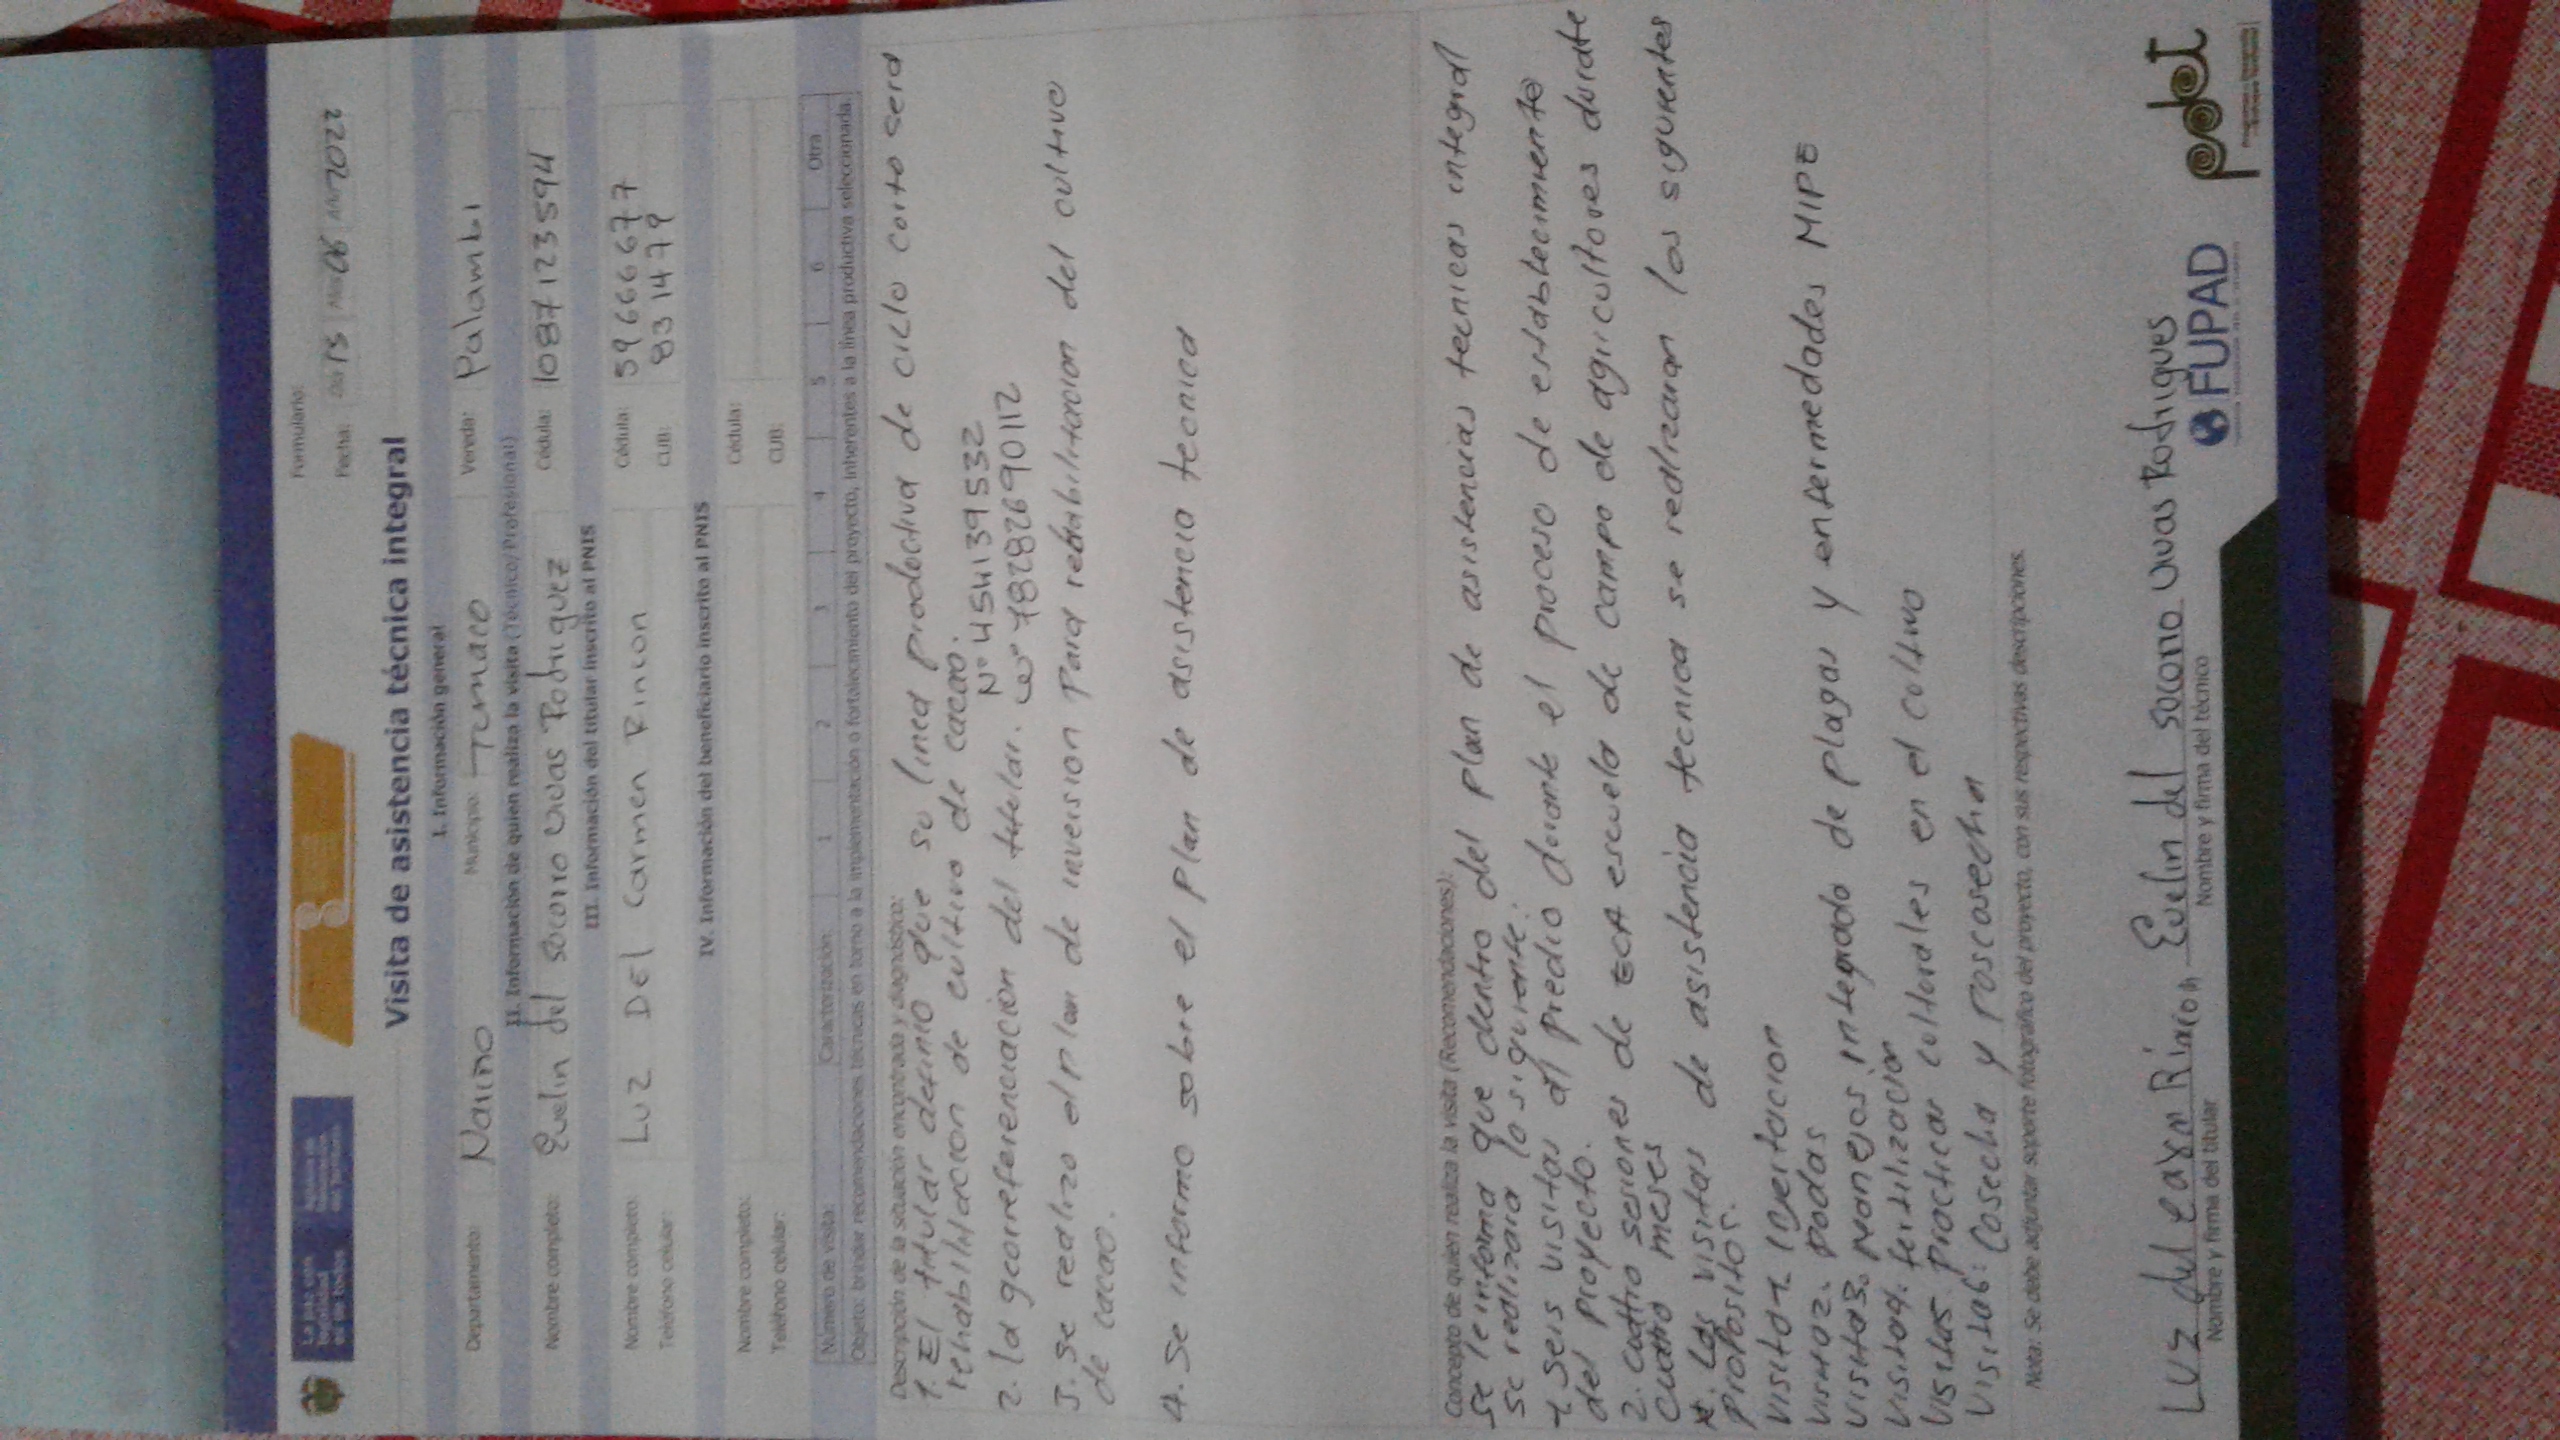 Formulario:
Fecha: Día 15 Mes 06 Año 2022
Visita de asistencia técnica integral
I. Información general
Departamento: Nariño Municipio: Tumaco Vereda: Palambi
II. Información de quien realiza la visita (Técnico/Profesional)
Nombre completo: Evelin del socorro vivas Rodriguez Cédula: 1087123594
III. Información del titular inscrito al PNIS
Nombre completo: Luz Del Carmen Rincon Cédula: 59666677
Teléfono celular: CUB: 831479
IV. Información del beneficiario inscrito al PNIS
Nombre completo: Cédula:
Teléfono celular: CUB:
Número de visita: Caracterización 1 2 3 4 5 6 Otra
Objeto: brindar recomendaciones técnicas en torno a la implementación o fortalecimiento del proyecto, inherentes a la línea productiva seleccionada.
Descripción de la situación encontrada y diagnóstico:
1. El titular definio que su linea productiva de ciclo corto sera
rehabilitacion de cultivo de cacao.
2. la georreferenciacion del titular. N° 454139532
W° 78282690112
3. se realizo el plan de inversion Para rehabilitacion del cultivo
de cacao.
4. Se informo sobre el plan de asistencia tecnica
Concepto de quien realiza la visita (Recomendaciones):
se le informa que dentro del plan de asistencias tecnicas integral
se realizara lo siguiente:
1. seis visitas al predio durante el proceso de establecimiento
del proyecto.
2. cuatro sesiones de ECA escuela de campo de agricultores durate
cuatro meses
*. Las visitas de asistencia tecnica se realizaran los siguientes
propositos.
visita 1
visita 2. podas
visita 3. Manejos integrado de plagas y enfermedades MIPE
visita 4. fertilizacion
visita 5. practicas culturales en el cultivo
visita 6: Cosecha y poscosecha
Nota: Se debe adjuntar soporte fotográfico del proyecto, con sus respectivas descripciones.
Luz del Rincon Evelin del socorro vivas Rodrigues
Nombre y firma del titular Nombre y firma del técnico
FUPAD
pdet